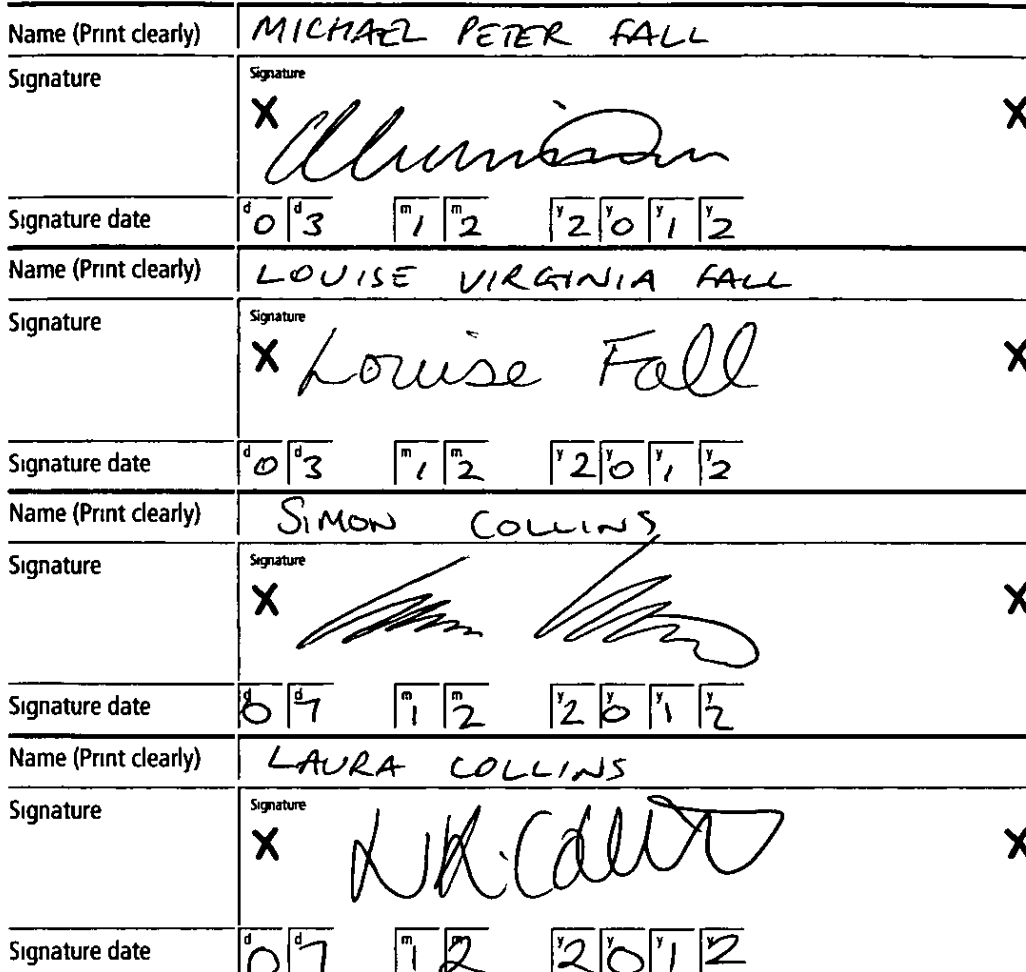 Name (Print clearly) MICHAEL PETER FALL
Signature
Signature
X X
Signature date d0 d3 m1 m2 y2 y0 y1 y2
Name (Print clearly) LOUISE VIRGINIA FALL
Signature
Signature
X Louise Fall X
Signature date d0 d3 m1 m2 y2 y0 y1 y2
Name (Print clearly) SIMON COLLINS
Signature
Signature
X X
Signature date d0 d7 m1 m2 y2 y0 y1 y2
Name (Print clearly) LAURA COLLINS
Signature
Signature
X X
Signature date d0 d7 m1 m2 y2 y0 y1 y2